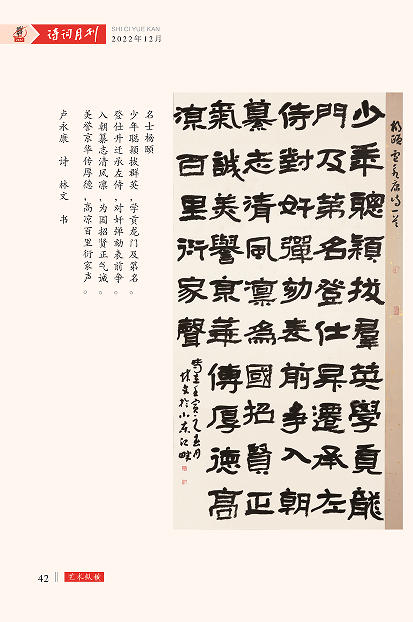 诗词月刊
SHI CI YUE KAN
2022年12月
名士杨颐
少年聪颖拔群英，学贡龙门及第名。
登仕升迁承左侍，对奸弹劾表前争。
入朝纂志清风凛，为国招贤正气诚。
美誉京华传厚德，高凉百里衍家声。
卢永康 诗 林文 书
少年聰穎拔羣英學貢龍
門及第名登仕昇遷承左
侍對奸彈劾表前爭入朝
纂志清風凛為國招賢正
氣誠美譽京華傳厚德高
涼百里衍家聲
林文於小东江畔
42
艺术纵横